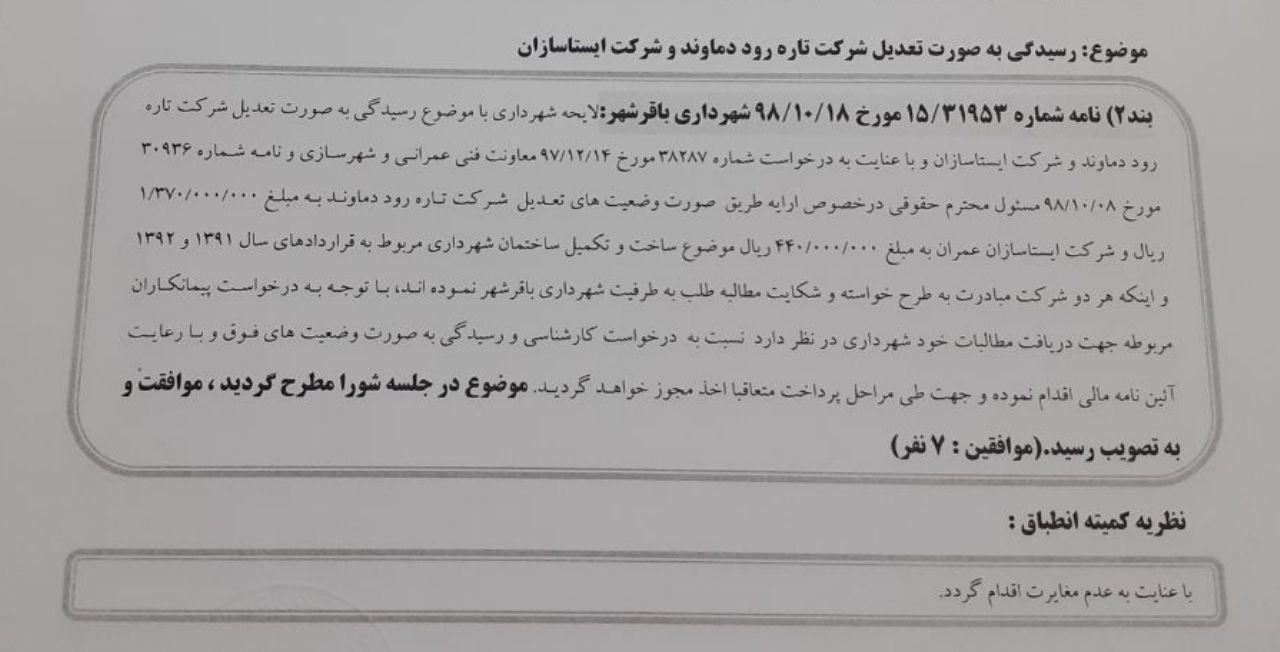 موضوع: رسیدگی به صورت تعدیل شرکت تاره رود دماوند و شرکت ایستاسازان
بند۲) نامه شماره ۱۵/۳۱۹۵۳ مورخ ۹۸/۱۰/۱۸ شهرداری باقرشهر:لایحه شهرداری با موضوع رسیدگی به صورت تعدیل شرکت تاره
رود دماوند و شرکت ایستاسازان و با عنایت به درخواست شماره ۳۸۲۸۷ مورخ ۹۷/۱۲/۱۴ معاونت فنی عمرانی و شهرسازی و نامه شماره ۳۰۹۳۶
مورخ ۹۸/۱۰/۰۸ مسئول محترم حقوقی درخصوص ارایه طریق صورت وضعیت های تعدیل شرکت تاره رود دماوند به مبلغ ۱/۳۷۰/۰۰۰/۰۰۰
ریال و شرکت ایستاسازان عمران به مبلغ ۴۴۰/۰۰۰/۰۰۰ ریال موضوع ساخت و تکمیل ساختمان شهرداری مربوط به قراردادهای سال ۱۳۹۱ و ۱۳۹۲
و اینکه هر دو شرکت مبادرت به طرح خواسته و شکایت مطالبه طلب به طرفیت شهرداری باقرشهر نموده اند، با توجه به درخواست پیمانکاران
مربوطه جهت دریافت مطالبات خود شهرداری در نظر دارد نسبت به درخواست کارشناسی و رسیدگی به صورت وضعیت های فوق و با رعایت
آئین نامه مالی اقدام نموده و جهت طی مراحل پرداخت متعاقبا اخذ مجوز خواهد گردید. موضوع در جلسه شورا مطرح گردید ، موافقت و
به تصویب رسید.(موافقین : ۷ نفر)
نظریه کمیته انطباق :
با عنایت به عدم مغایرت اقدام گردد.